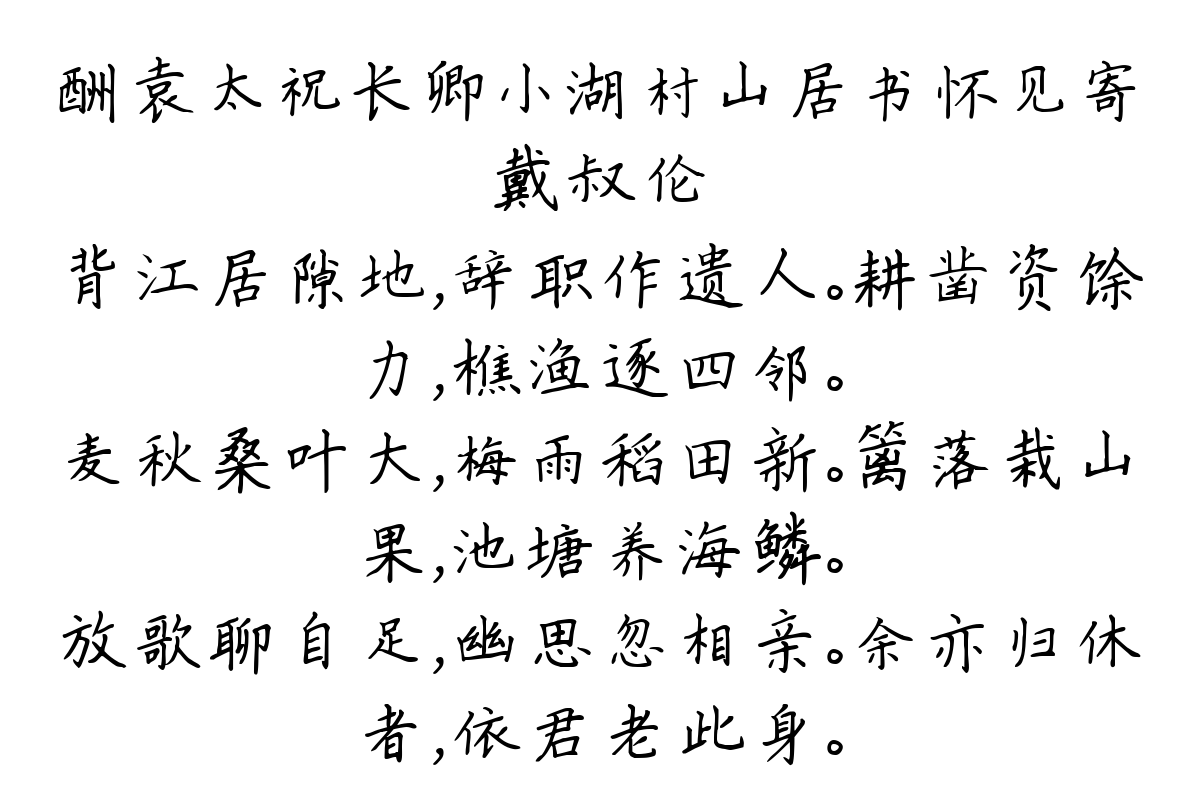 酬袁太祝长卿小湖村山居书怀见寄
戴叔伦
背江居隙地,辞职作遗人。耕凿资馀
力,樵渔逐四邻。
麦秋桑叶大,梅雨稻田新。篱落栽山
果,池塘养海鳞。
放歌聊自足,幽思忽相亲。余亦归休
者,依君老此身。